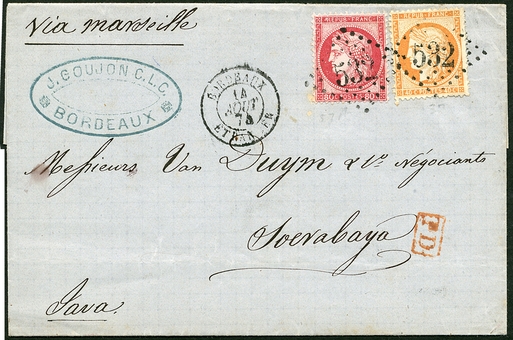 Via Marseille
J. GOUJON C.L.C.
BORDEAUX
BORDEAUX
14
AOUT
74
ETRANGER
REPUB·FRANC
80 80
532
REPUB·FRANC
40 40
532
Messieurs Van Duym & Cº Négociants
Soerabaya
P.D.
Java